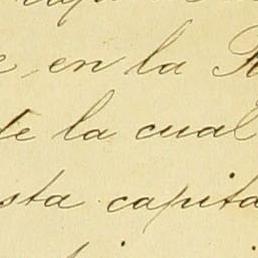 en la
te la cual
sta capita